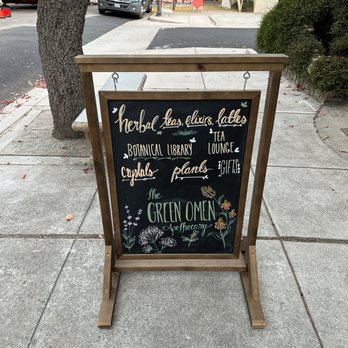 herbal teas, elixirs, lattes
BOTANICAL LIBRARY
TEA LOUNGE
crystals plants GIFTS
the
GREEN OMEN
Apothecary